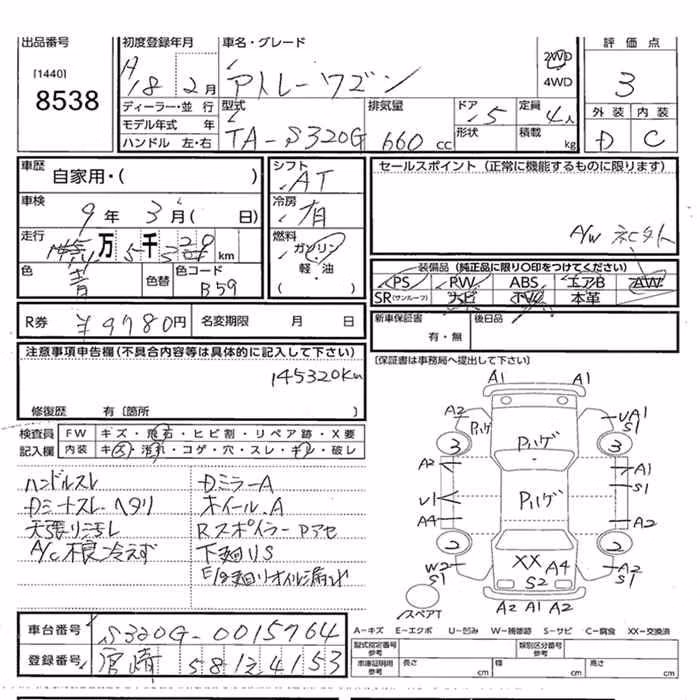 出品番号 初度登録年月 車名・グレード 評価点
[1440] H 18 2月 アトレーワゴン 2WD 3
8538 4WD
ディーラー・並 行 型式 排気量 ドア 5 定員 4人 外装 内装
モデル年式 年 TA-S320G 660 cc 形状 積載 kg D C
ハンドル 左・右
車歴 自家用・( ) シフト AT セールスポイント (正常に機能するものに限ります)
車検 9年 3月 ( 日) 冷房 有
走行 万 千 km 燃料 ガソリン 軽・油 ( )
色 青 色替 色コード B59
装備品 (純正品に限り○印をつけてください)
PS RW ABS エアB AW
SR(サンルーフ) ナビ 本革
R券 ¥9780円 名変期限 月 日 新車保証書 有・無 後日品
注意事項申告欄(不具合内容等は具体的に記入して下さい) (保証書は事務局へ提出して下さい)
145320Km
修復歴 有〔箇所 〕
検査員 FW キズ・飛石・ヒビ割・リペア跡・X要
記入欄 内装 キズ・汚れ・コゲ・穴・スレ・キレ・破レ
ハンドルスレ DミラーA
Dミートスレ ヘタリ ホイールA
天張リ汚レ RスポイラーアPアセ
A/C不良冷えず 下廻リS
E/G廻リオイル漏レ
A1 A1
A2 Pハゲ Pハゲ UA1
S1
3 3
A2 A1
S1
U1 Pハゲ
A4 A2
2 2
W2 XX A4 A2
S1 S2 S1
A2 A1 A2
スペアT
車台番号 S320G-0015764
登録番号 宮崎 58 4153
A-キズ E-エクボ U-凹み W-補修跡 S-サビ C-腐食 XX-交換済
型式指定番号 類別区分番号
車庫証明用参考 長さ cm 幅 cm 高さ cm